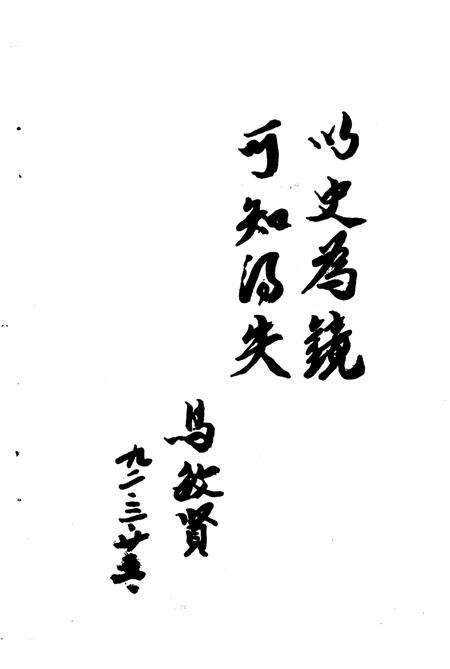 以史為鏡
可知得失
馬敏贤
九二.三.廿五.